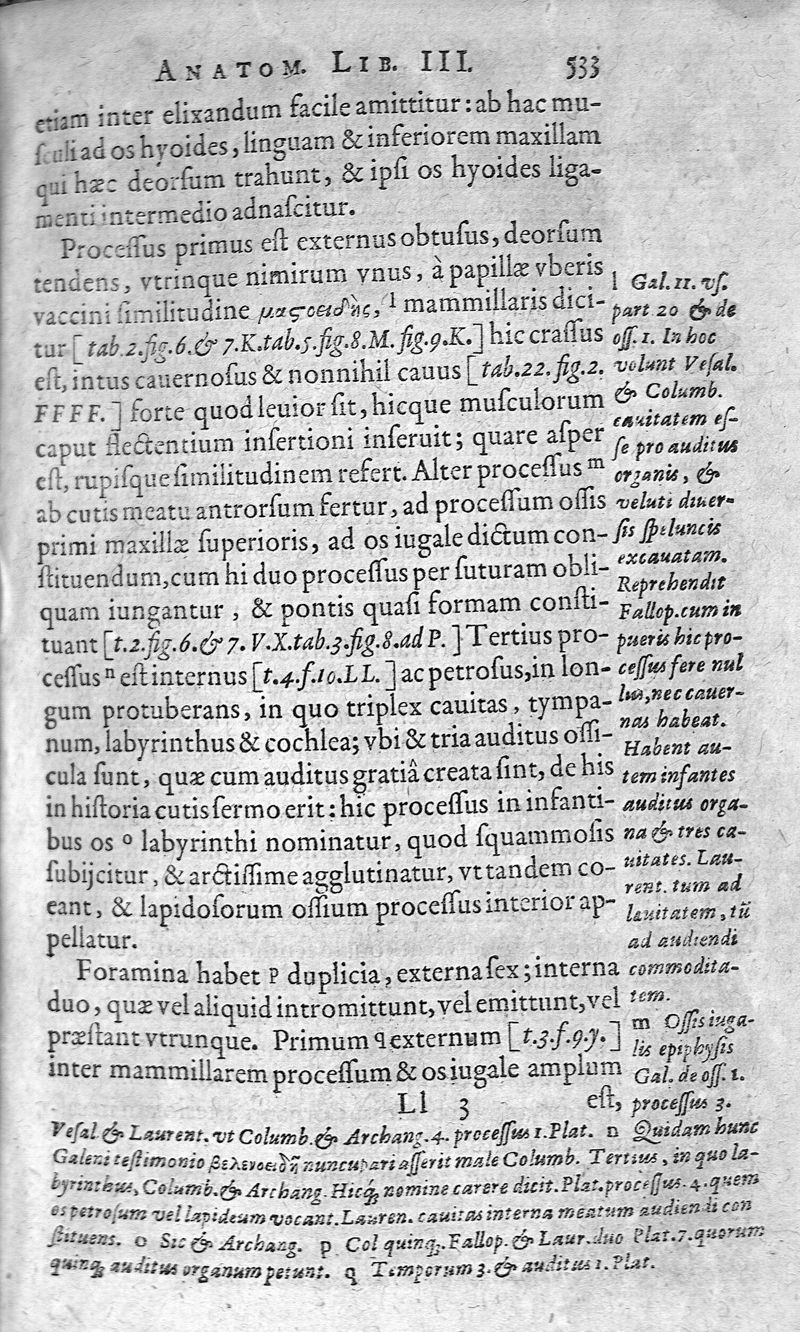 ANATOM. LIB. III. 533
etiam inter elixandum facile amittitur: ab hac mu-
ſculi ad os hyoides, linguam & inferiorem maxillam
qui hæc deorſum trahunt, & ipſi os hyoides liga-
menti intermedio adnaſcitur.
Proceſſus primus eſt externus obtuſus, deorſum
tendens, vtrinque nimirum vnus, à papillæ vberis
vaccini ſimilitudine μαϛοειδὴς, l mammillaris dici-
tur [tab.2.fig.6.& 7.K.tab.5.fig.8.M. fig.9.K.] hic craſſus
eſt, intus cauernoſus & nonnihil cauus [tab.22.fig.2.
FFFF.] forte quod leuior ſit, hicque muſculorum
caput flectentium inſertioni inſeruit; quare aſper
eſt, rupiſque ſimilitudinem refert. Alter proceſſus m
ab cutis meatu antrorſum fertur, ad proceſſum oſſis
primi maxillæ ſuperioris, ad os iugale dictum con-
ſtituendum, cum hi duo proceſſus per ſuturam obli-
quam iungantur, & pontis quaſi formam conſti-
tuant [t.2.fig.6.& 7. V.X.tab.3.fig.8.ad P.] Tertius pro-
ceſſus n eſt internus [t.4.f.10.LL.] ac petroſus, in lon-
gum protuberans, in quo triplex cauitas, tympa-
num, labyrinthus & cochlea; vbi & tria auditus oſſi-
cula ſunt, quæ cum auditus gratiâ creata ſint, de his
in hiſtoria cutis ſermo erit: hic proceſſus in infanti-
bus os o labyrinthi nominatur, quod ſquammoſis
ſubijcitur, & arctiſſime agglutinatur, vt tandem co-
eant, & lapidoſorum oſſium proceſſus interior ap-
pellatur.
Foramina habet p duplicia, externa ſex; interna
duo, quæ vel aliquid intromittunt, vel emittunt, vel
præſtant vtrunque. Primum q externum [t.3.f.9.y.]
inter mammillarem proceſſum & os iugale amplum
Ll 3 eſt,
l Gal. 11. vſ.
part. 20 & de
oſſ. 1. In hoc
volunt Veſal.
& Columb.
cauitatem eſ-
ſe pro auditus
organis, &
veluti diuer-
ſis ſpeluncis
excauatam.
Reprehendit
Fallop. cum in
pueris hic pro-
ceſſus fere nul
lus, nec cauer-
nas habeat.
Habent au-
tem infantes
auditus orga-
na & tres ca-
uitates. Lau-
rent. tum ad
lauitatem, tū
ad audiendi
commodita-
tem.
m Oſſis iuga-
lis epiphyſis
Gal. de oſſ. 1.
proceſſus 3.
Veſal & Laurent. vt Columb. & Archang. 4. proceſſus 1. Plat. n Quidam hunc
Galeni teſtimonio βελενοειδῆ nuncupari aſſerit male Columb. Tertius, in quo la-
byrinthus, Columb. & Archang. Hicq; nomine carere dicit. Plat. proceſſus 4. quem
os petroſum vel lapideum vocant. Lauren. cauitas interna meatum audiendi con
ſtituens. o Sic & Archang. p Col quinq;. Fallop. & Laur. duo Plat. 7. quorum
quinq; auditus organum petunt. q Temporum 3. & auditus 1. Plat.